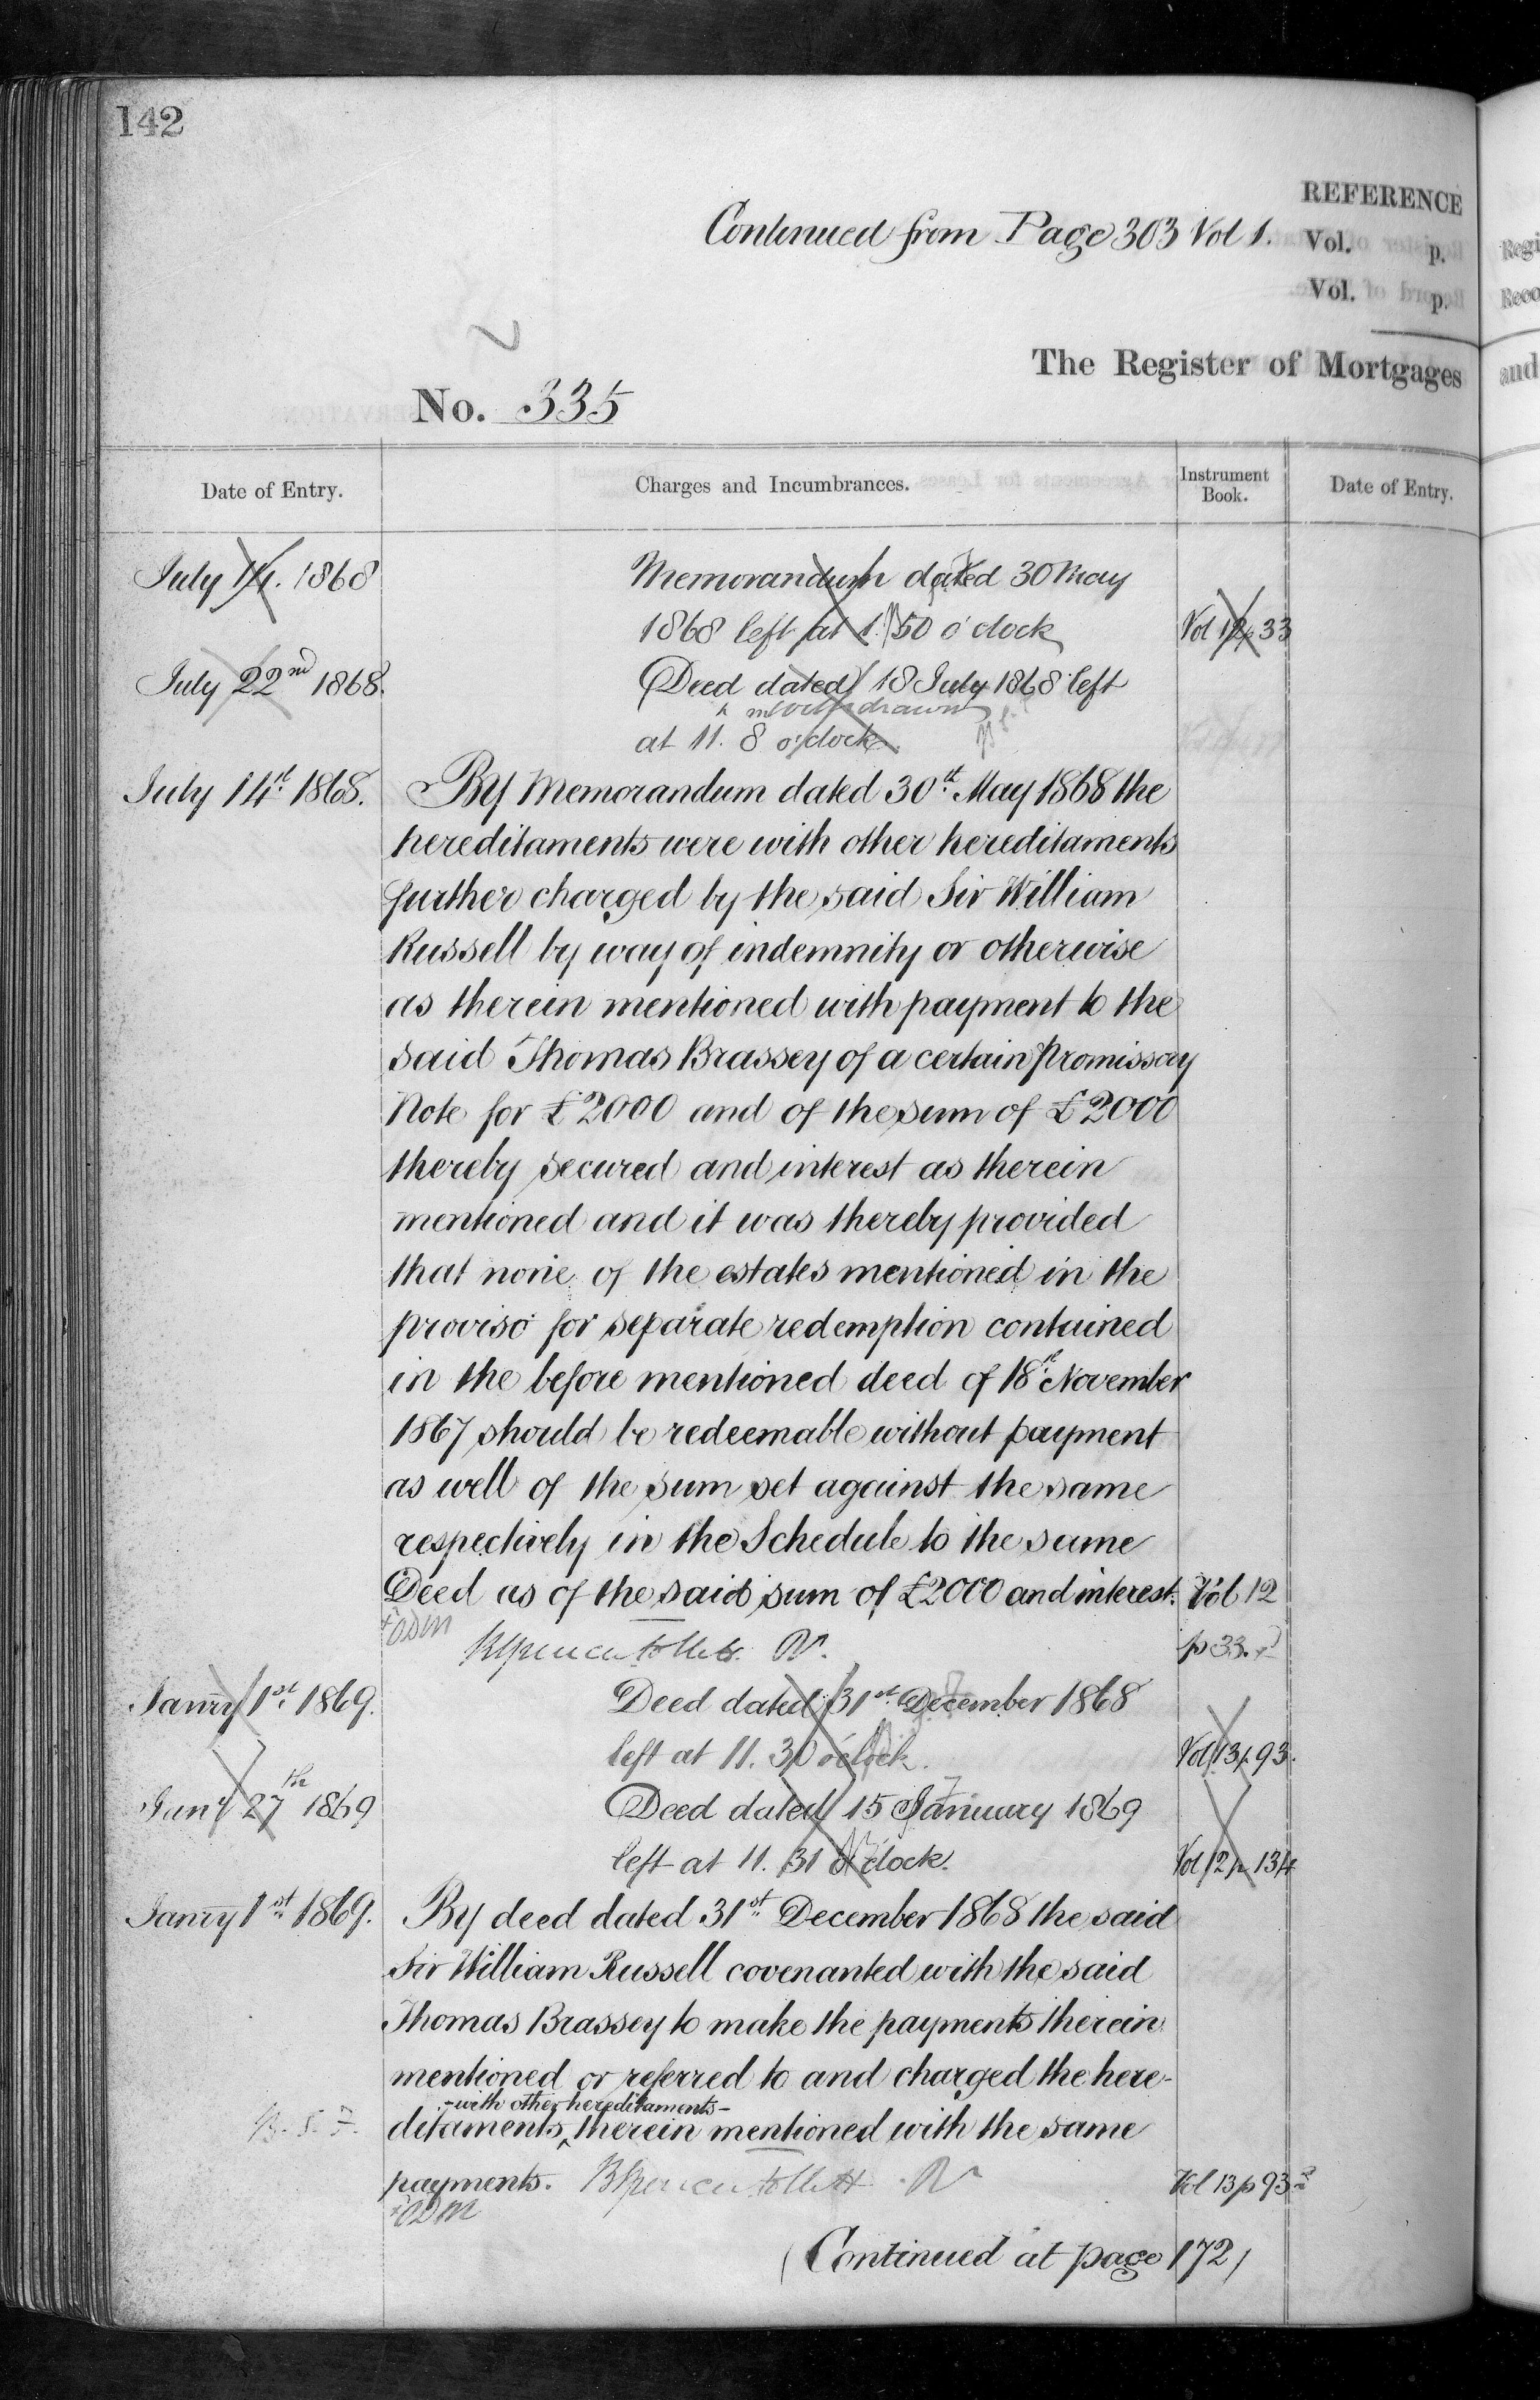 142
REFERENCE
Continued from Page 303 Vol 1.
Vol. p.
Vol. p.
The Register of Mortgages
No. 335
Date of Entry. Charges and Incumbrances. Instrument Book. Date of Entry.
July 14. 1868 Memorandum dated 30 May
1868 left at 1.50 o'clock Vol 12p 33
July 22nd 1868. Deed dated 18 July 1868 left
withdrawn
at 11. 8 o'clock.
July 14th 1868. By Memorandum dated 30th May 1868 the
hereditaments were with other hereditaments
further charged by the said Sir William
Russell by way of indemnity or otherwise
as therein mentioned with payment to the
said Thomas Brassey of a certain Promissory
Note for £2000 and of the sum of £2000
thereby secured and interest as therein
mentioned and it was thereby provided
that none of the estates mentioned in the
proviso for separate redemption contained
in the before mentioned deed of 18th November
1867 should be redeemable without payment
as well of the sum set against the same
respectively in the Schedule to the same
Deed as of the said sum of £2000 and interest. Vol 12
p 33.
Janry 1st 1869. Deed dated 31st December 1868
left at 11. 30 o'clock. Vol 13p 93.
Jany 27th 1869 Deed dated 15 January 1869
left at 11. 31 o'clock. Vol 12p 134
Janry 1st 1869. By deed dated 31st December 1868 the said
Sir William Russell covenanted with the said
Thomas Brassey to make the payments therein
mentioned or referred to and charged the here-
-with other hereditaments-
ditaments, therein mentioned with the same
payments. Vol 13 p 93
(Continued at page 172)